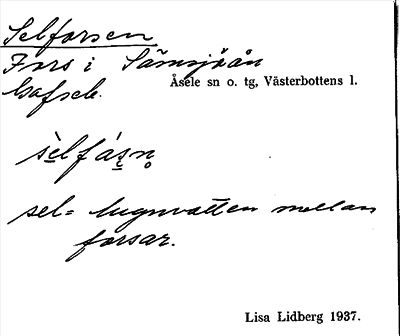 Selforsen
Fors i Sämsjöån
Gafsele.
Åsele sn o. tg, Västerbottens l.
sèlfás̠n̥
sel = lugnvatten mellan
forsar.
Lisa Lidberg 1937.